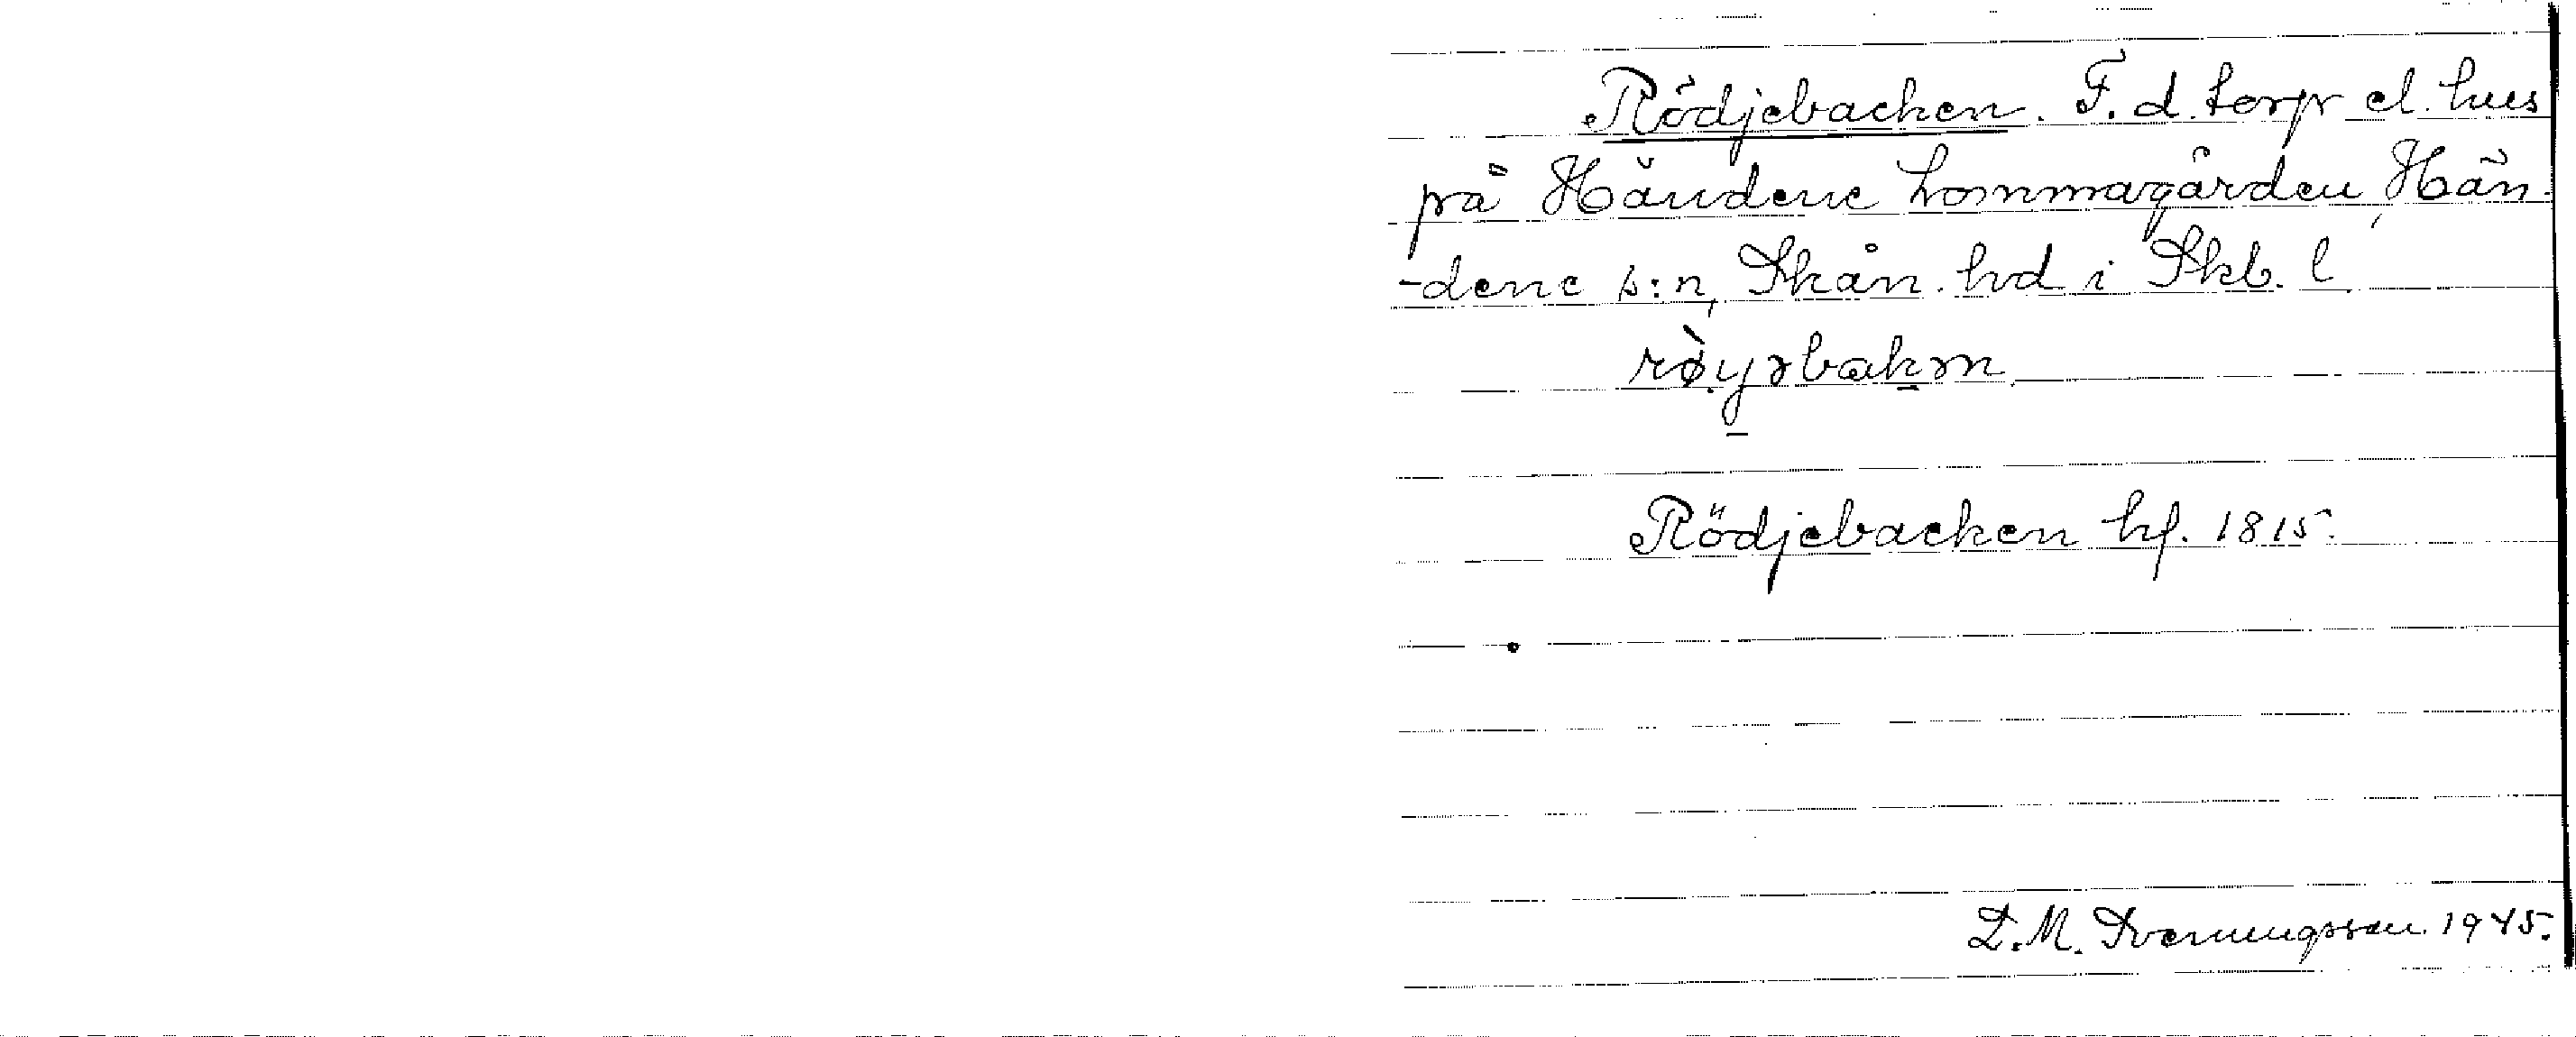 Rödjebacken. F. d. torp el. hus
på Händene Lommagården, Hän-
-dene s:n, Skån. hd i Skb. l.
rø̀yəbakən
Rödjebacken hf. 1815.
D. M. Sverungsson 1945.